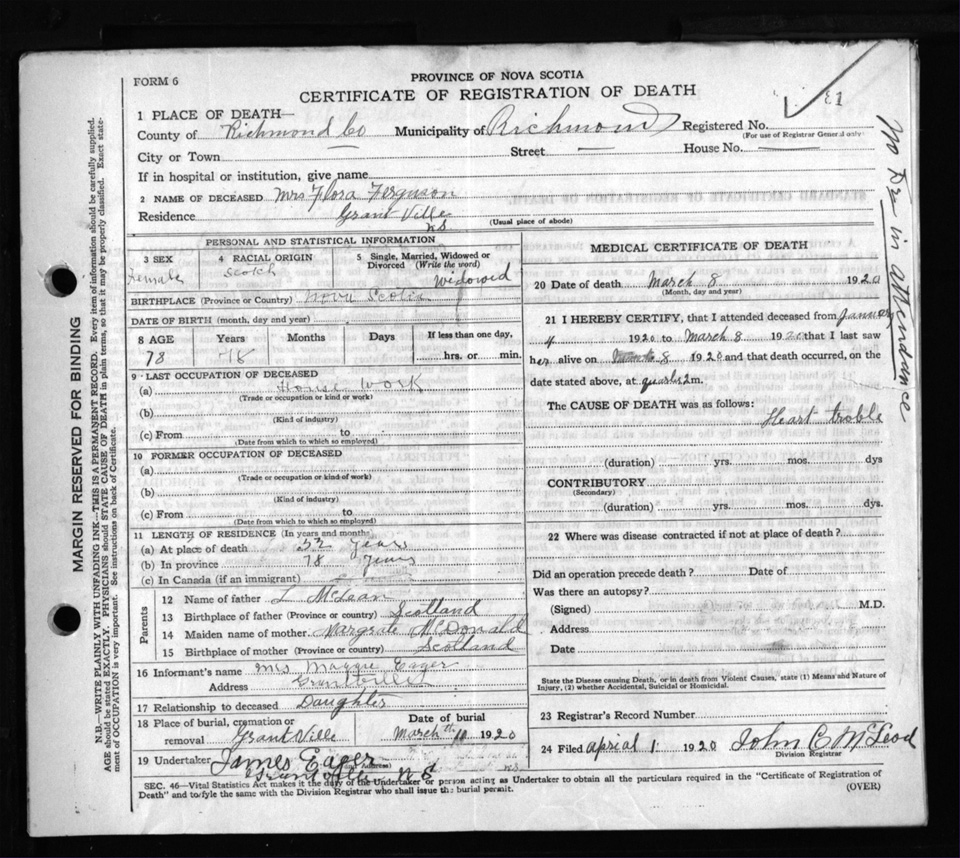 FORM 6
PROVINCE OF NOVA SCOTIA
CERTIFICATE OF REGISTRATION OF DEATH
1 PLACE OF DEATH—
County of Richmond Co Municipality of Richmond Registered No.
(For use of Registrar General only)
City or Town Street — House No.
If in hospital or institution, give name
2 NAME OF DECEASED Mrs Flora Ferguson
Residence Grant Ville
N.S. (Usual place of abode)
No Dr in attendance
PERSONAL AND STATISTICAL INFORMATION
3 SEX
Female
4 RACIAL ORIGIN
Scotch
5 Single, Married, Widowed or
Divorced (Write the word)
Widowed
BIRTHPLACE (Province or Country) Nova Scotia
DATE OF BIRTH (month, day and year)
8 AGE Years Months Days If less than one day,
78 78 hrs. or min.
9 LAST OCCUPATION OF DECEASED
(a) House work
(Trade or occupation or kind or work)
(b)
(Kind of industry)
(c) From to
(Date from which to which so employed)
10 FORMER OCCUPATION OF DECEASED
(a)
(Trade or occupation or kind of work)
(b)
(Kind of industry)
(c) From to
(Date from which to which so employed)
11 LENGTH OF RESIDENCE (In years and months)
(a) At place of death years
(b) In province 78 years
(c) In Canada (if an immigrant)
Parents
12 Name of father McLean
13 Birthplace of father (Province or country) Scotland
14 Maiden name of mother Margrate McDonald
15 Birthplace of mother (Province or country) Scotland
16 Informant's name Mrs Maggie Eager
Address Grantville
17 Relationship to deceased Daughter
18 Place of burial, cremation or
removal Grant Ville
Date of burial
March 10 1920
19 Undertaker James Eager
(Address) Grant Ville N S
MEDICAL CERTIFICATE OF DEATH
20 Date of death March 8 1920
(Month, day and year)
21 I HEREBY CERTIFY, that I attended deceased from January
1920 to March 8 1920 that I last saw
her alive on 8 1920 and that death occurred, on the
date stated above, at m.
The CAUSE OF DEATH was as follows:
Heart troble
(duration) yrs. mos. dys
CONTRIBUTORY
(Secondary)
(duration) yrs. mos. dys.
22 Where was disease contracted if not at place of death?
Did an operation precede death? Date of
Was there an autopsy?
(Signed) M.D.
Address
Date
State the Disease causing Death, or in death from Violent Causes, state (1) Means and Nature of
Injury, (2) whether Accidental, Suicidal or Homicidal.
23 Registrar's Record Number
24 Filed aprial 1 1920 John C McLeod
Division Registrar
SEC. 46—Vital Statistics Act makes it the duty of the Undertaker or person acting as Undertaker to obtain all the particulars required in the "Certificate of Registration of
Death" and to fyle the same with the Division Registrar who shall issue the burial permit. (OVER)
MARGIN RESERVED FOR BINDING
N.B.—WRITE PLAINLY WITH UNFADING INK—THIS IS A PERMANENT RECORD. Every item of information should be carefully supplied.
AGE should be stated EXACTLY. PHYSICIANS should STATE CAUSE OF DEATH in plain terms, so that it may be properly classified. Exact state-
ment of OCCUPATION is very important. See instructions on back of Certificate.